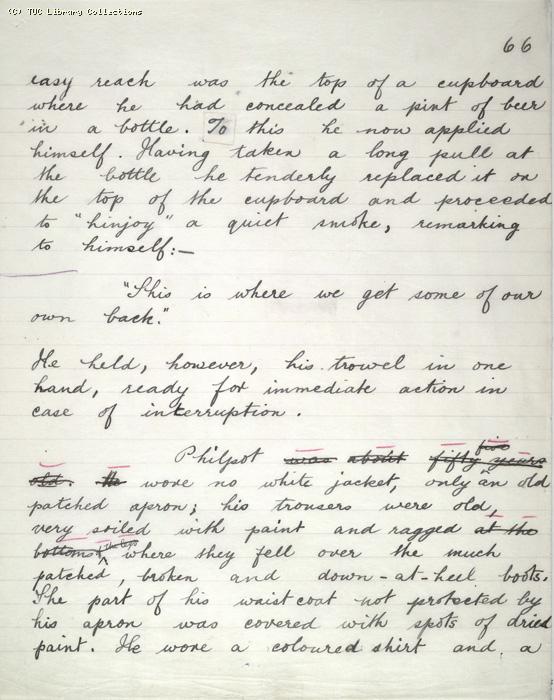 (C) TUC Library Collections
66
easy reach was the top of a cupboard
where he had concealed a pint of beer
in a bottle. To this he now applied
himself. Having taken a long pull at
the bottle he tenderly replaced it on
the top of the cupboard and proceeded
to "hinjoy" a quiet smoke, remarking
to himself:—
"This is where we get some of our
own back."
He held, however, his trowel in one
hand, ready for immediate action in
case of interruption.
five
Philpot was about fifty years
old. He wore no white jacket, only an old
patched apron; his trousers were old,
very soiled with paint and ragged at the
bottoms of the legs where they fell over the much
patched, broken and down-at-heel boots.
The part of his waistcoat not protected by
his apron was covered with spots of dried
paint. He wore a coloured shirt and a